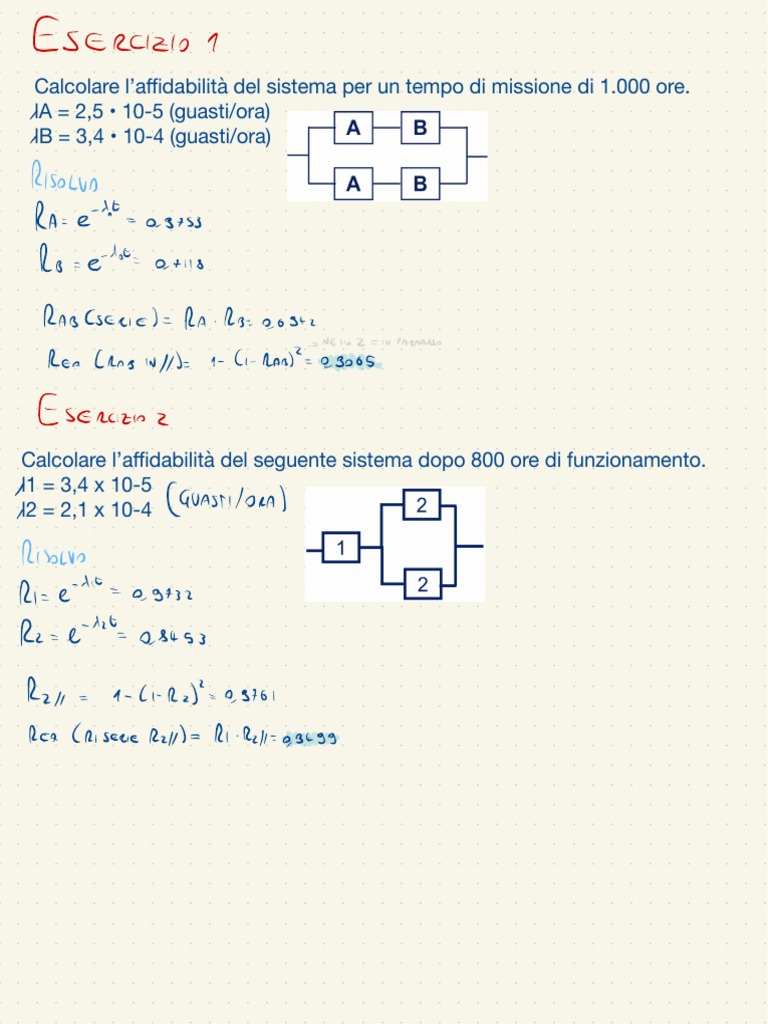 ESERCIZIO 1
Calcolare l'affidabilità del sistema per un tempo di missione di 1.000 ore.
λA = 2,5 • 10-5 (guasti/ora)
λB = 3,4 • 10-4 (guasti/ora)
A B
A B
RISOLVO
RA = e^-λAt = 0,9753
RB = e^-λBt = 0,7118
RAB (SERIE) = RA · RB = 0,6942
NE HO 2 = IN PARALLELO
REQ (RAB IN //) = 1-(1-RAB)^2 = 0,9065
ESERCIZIO 2
Calcolare l'affidabilità del seguente sistema dopo 800 ore di funzionamento.
λ1 = 3,4 x 10-5
λ2 = 2,1 x 10-4
(GUASTI/ORA)
2
1
2
RISOLVO
R1 = e^-λ1t = 0,9732
R2 = e^-λ2t = 0,8453
R2// = 1-(1-R2)^2 = 0,9761
REQ (R1 SERIE R2//) = R1 · R2// = 0,9499